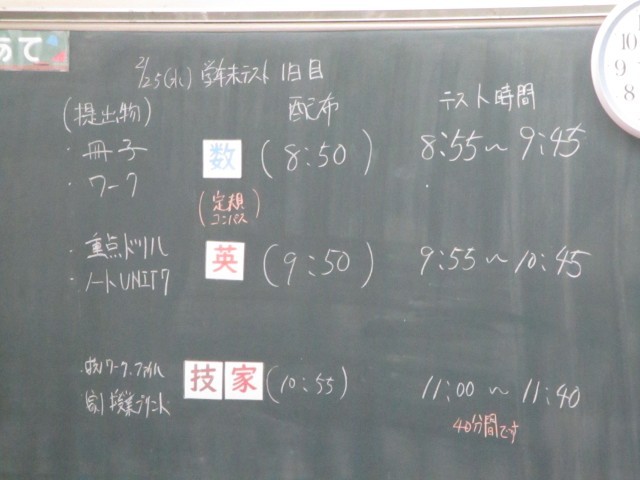 あて
2/25(水) 学年末テスト 1日目
(提出物) 配布 テスト時間
・冊子 数 (8:50) 8:55～9:45
・ワーク
(定規
コンパス)
・重点ドリル 英 (9:50) 9:55～10:45
・ノートUNIT7
・技)ワーク、ファイル 技 家 (10:55) 11:00～11:40
家)授業プリント
40分間です
10
9
8